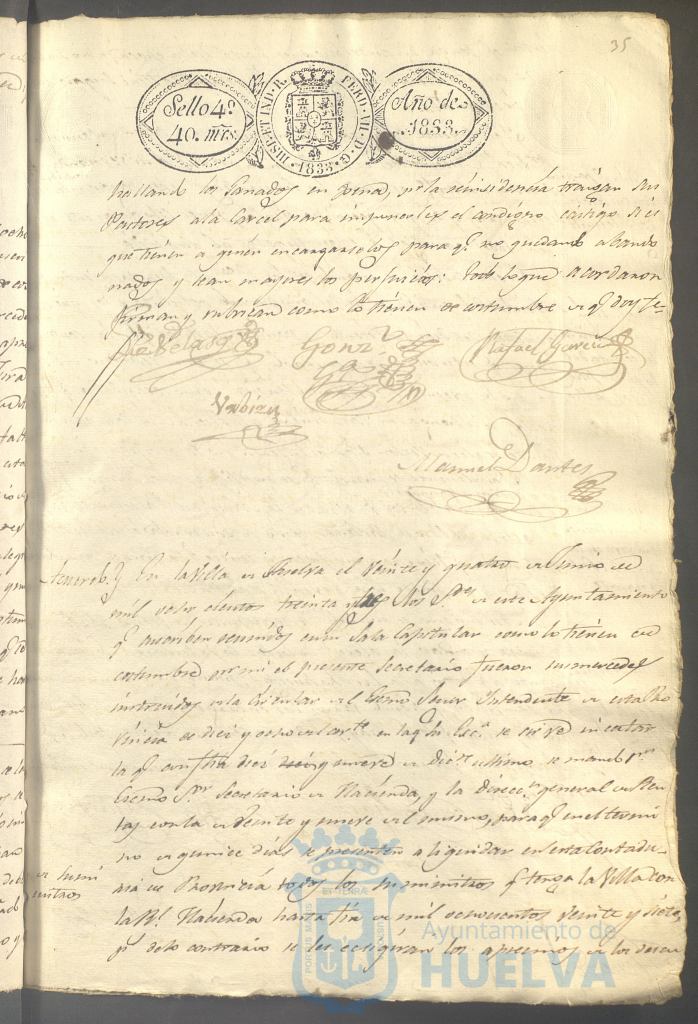 35
Sello 4º
40. mrs.
HISP. ET IND. R. FERD. VII. D. G.
1833
Año de
1833.
hallando los Ganados en pena, pr la reinsidencia traigan sus
Pastores ala Carcel para imponerles el condigno castigo si es
que tienen a quien encargarselos para qe no quedando abando
nados y sean mayores los perjuicios: Todo loque acordaron
firman y rubrican como lo tienen de costumbre de qe doy fe
Velasqz
Gonz
Rafael Garcia
Manuel Dantes
Acuerdo. En la Villa de Huelva el veinte y quatro de Junio de
mil ocho cientos treinta y tres los Sres de este Ayuntamiento
qe suscriben reunidos en su Sala Capitular como lo tienen de
costumbre por mi el presente Secretario fueron sus mercedes
instruidos de la Circular del Exmo Señor Intendente de esta Pro
vincia de diez y ocho del corte en la qe se sirve incertar
la qe con fha diez y nueve de Dice ultimo se mando pr
Exsmo Sor Secretario de Hacienda, y la Direccn general de Ren
tas con la de veinte y nueve del mismo, para qe en el termi
no de quince dias se presenten a liquidar en esta Contadu-
ria de Provincia todos los suministros qe tenga la Villa con
la Rl Hacienda hasta fin de mil ochocientos veinte y siete,
pr de lo contrario se les ecsigirán los apremios de los descu
de sumi
nistros
Ayuntamiento de
HUELVA